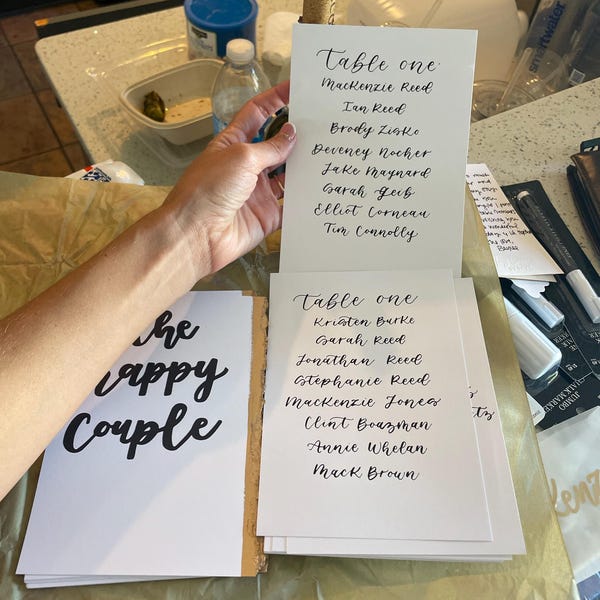 Table one
MacKenzie Reed
Ian Reed
Brody Zisko
Deveney Nocher
Jake Maynard
Sarah Geib
Elliot Corneau
Tim Connolly
Table one
Kristen Burke
Sarah Reed
Jonathan Reed
Stephanie Reed
MacKenzie Jones
Clint Boazman
Annie Whelan
Mack Brown
the
happy
Couple
smartwater
JUMBO
CHALK MARKER